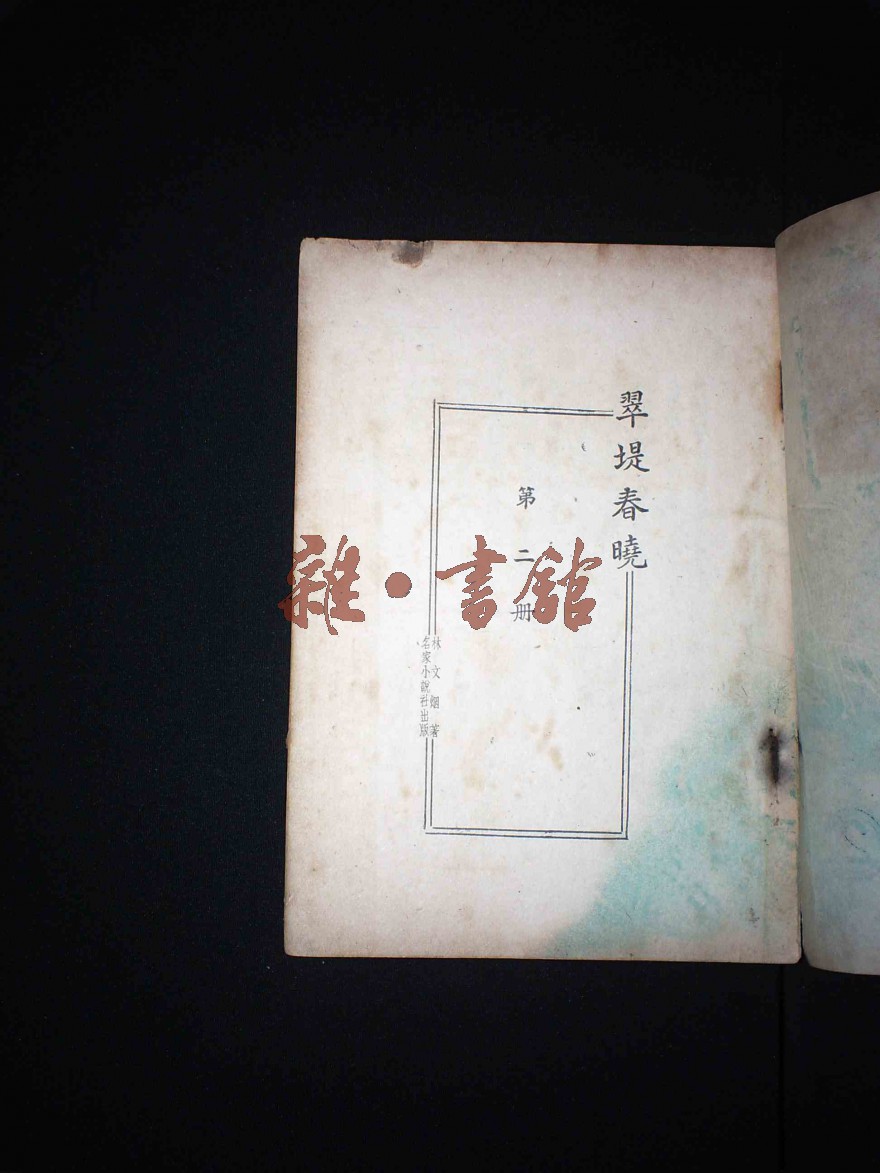 翠堤春曉
第二册
林文烟著
名家小說社出版
雜·書館